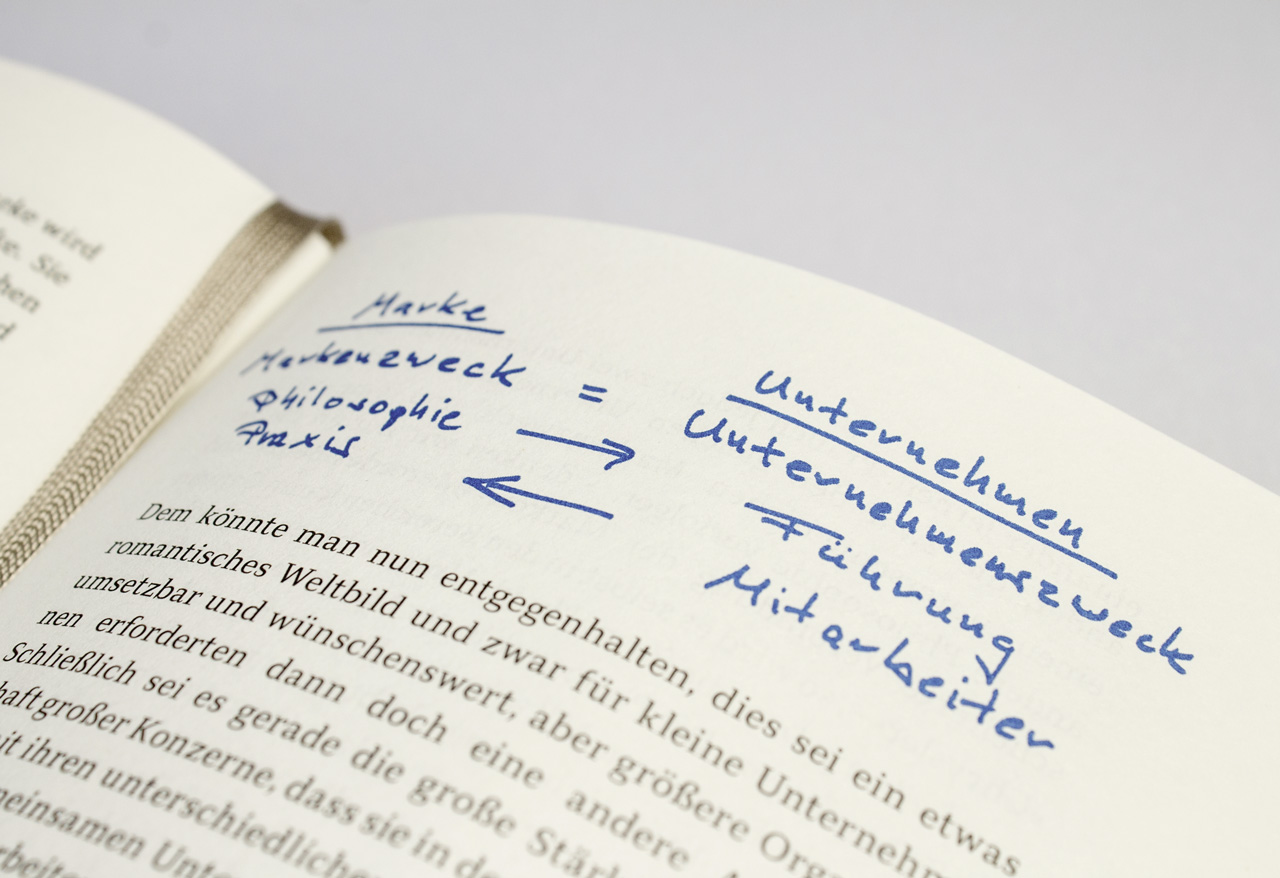 wird
Sie
Marke
Markenzweck = 
Philosophie →
Praxis ←
Unternehmen
Unternehmenszweck
Führung
Mitarbeiter
Dem könnte man nun entgegenhalten, dies sei ein etwas
romantisches Weltbild und zwar für kleine Unternehm
umsetzbar und wünschenswert, aber größere Orga
nen erforderten dann doch eine andere
Schließlich sei es gerade die große Stärk
haft großer Konzerne, dass sie in de
it ihren unterschiedliche
meinsamen Unte